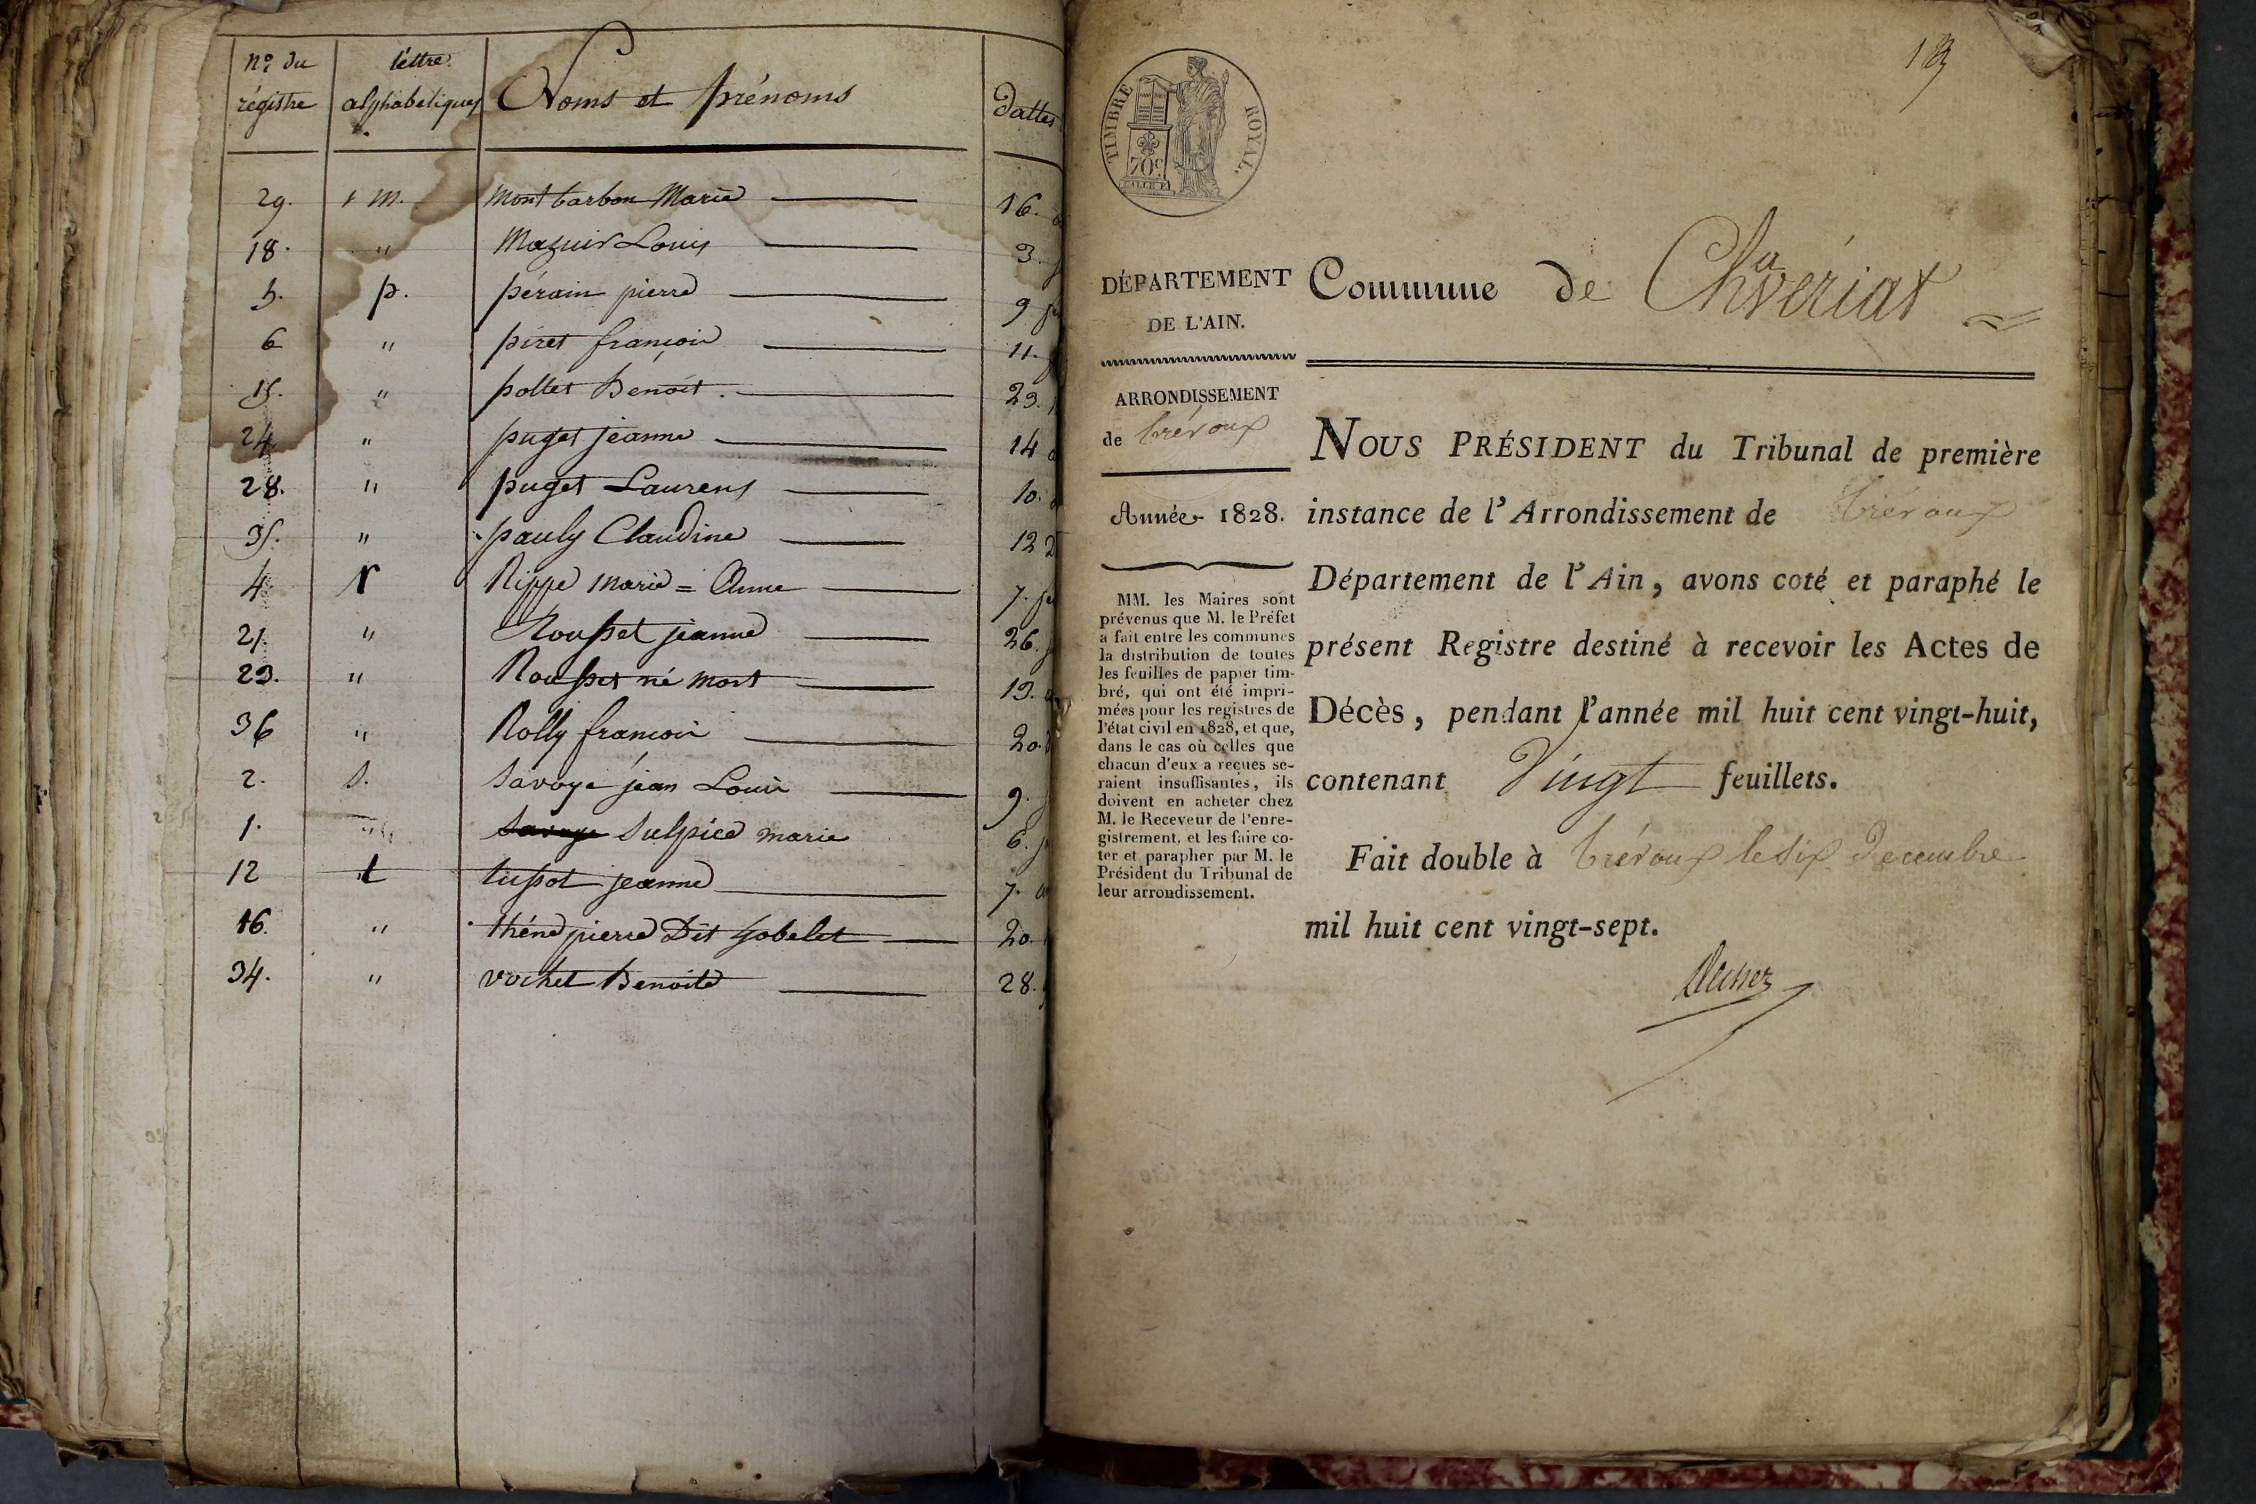 nº du
régistre
léttre
alphabétiques
Noms et prénoms
dattes
29. m. montbarbon Marie 16.
18. " Mazuir Louis 3.
5. p. pérain pierre 9
6 " piret françois 11.
15. " pollet Benoit. 29.
24 " puget jeanne 14
28. " puget Laurens 10.
35. " pauly Claudine 12
4. r Rippe marie = Anne 7.
21. " Rousset jeanne 26.
23. " Rousset né mort 19.
36 " Rolly françois 20.
2. S. Savoye jean Louis 9.
1. " Savoye Sulpice marie 6.
12 t tissot jeanne 7.
16. " théne pierre Dit Gobelet 20.
34. " vochet Benoite 28.
TIMBRE ROYAL.
70c
DÉPARTEMENT
DE L'AIN.
Commune de Chaveriat
ARRONDISSEMENT
de trévoux
Année 1828.
MM. les Maires sont
prévenus que M. le Préfet
a fait entre les communes
la distribution de toutes
les feuilles de papier tim-
bré, qui ont été impri-
mées pour les registres de
l'état civil en 1828, et que,
dans le cas où celles que
chacun d'eux a reçues se-
raient insuffisantes, ils
doivent en acheter chez
M. le Receveur de l'enre-
gistrement, et les faire co-
ter et parapher par M. le
Président du Tribunal de
leur arrondissement.
NOUS PRÉSIDENT du Tribunal de première
instance de l'Arrondissement de trévoux
Département de l'Ain, avons coté et paraphé le
présent Registre destiné à recevoir les Actes de
Décès, pendant l'année mil huit cent vingt-huit,
contenant Vingt feuillets.
Fait double à trévoux le six decembre
mil huit cent vingt-sept.